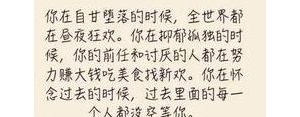 你在自甘堕落的时候，全世界都
在昼夜狂欢。你在抑郁孤独的时
候，你的前任和讨厌的人都在努
力赚大钱吃美食找新欢。你在怀
念过去的时候，过去里面的每一
个人都没空等你。